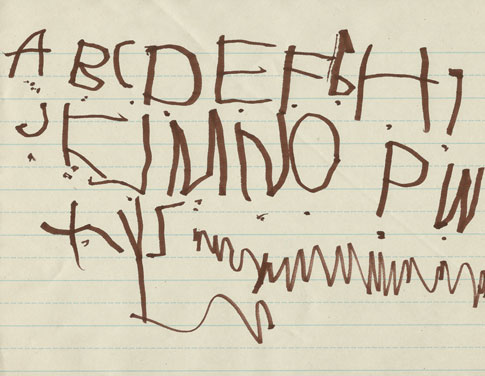 A B C D E F G H I
J K L M N O P W
X Y S